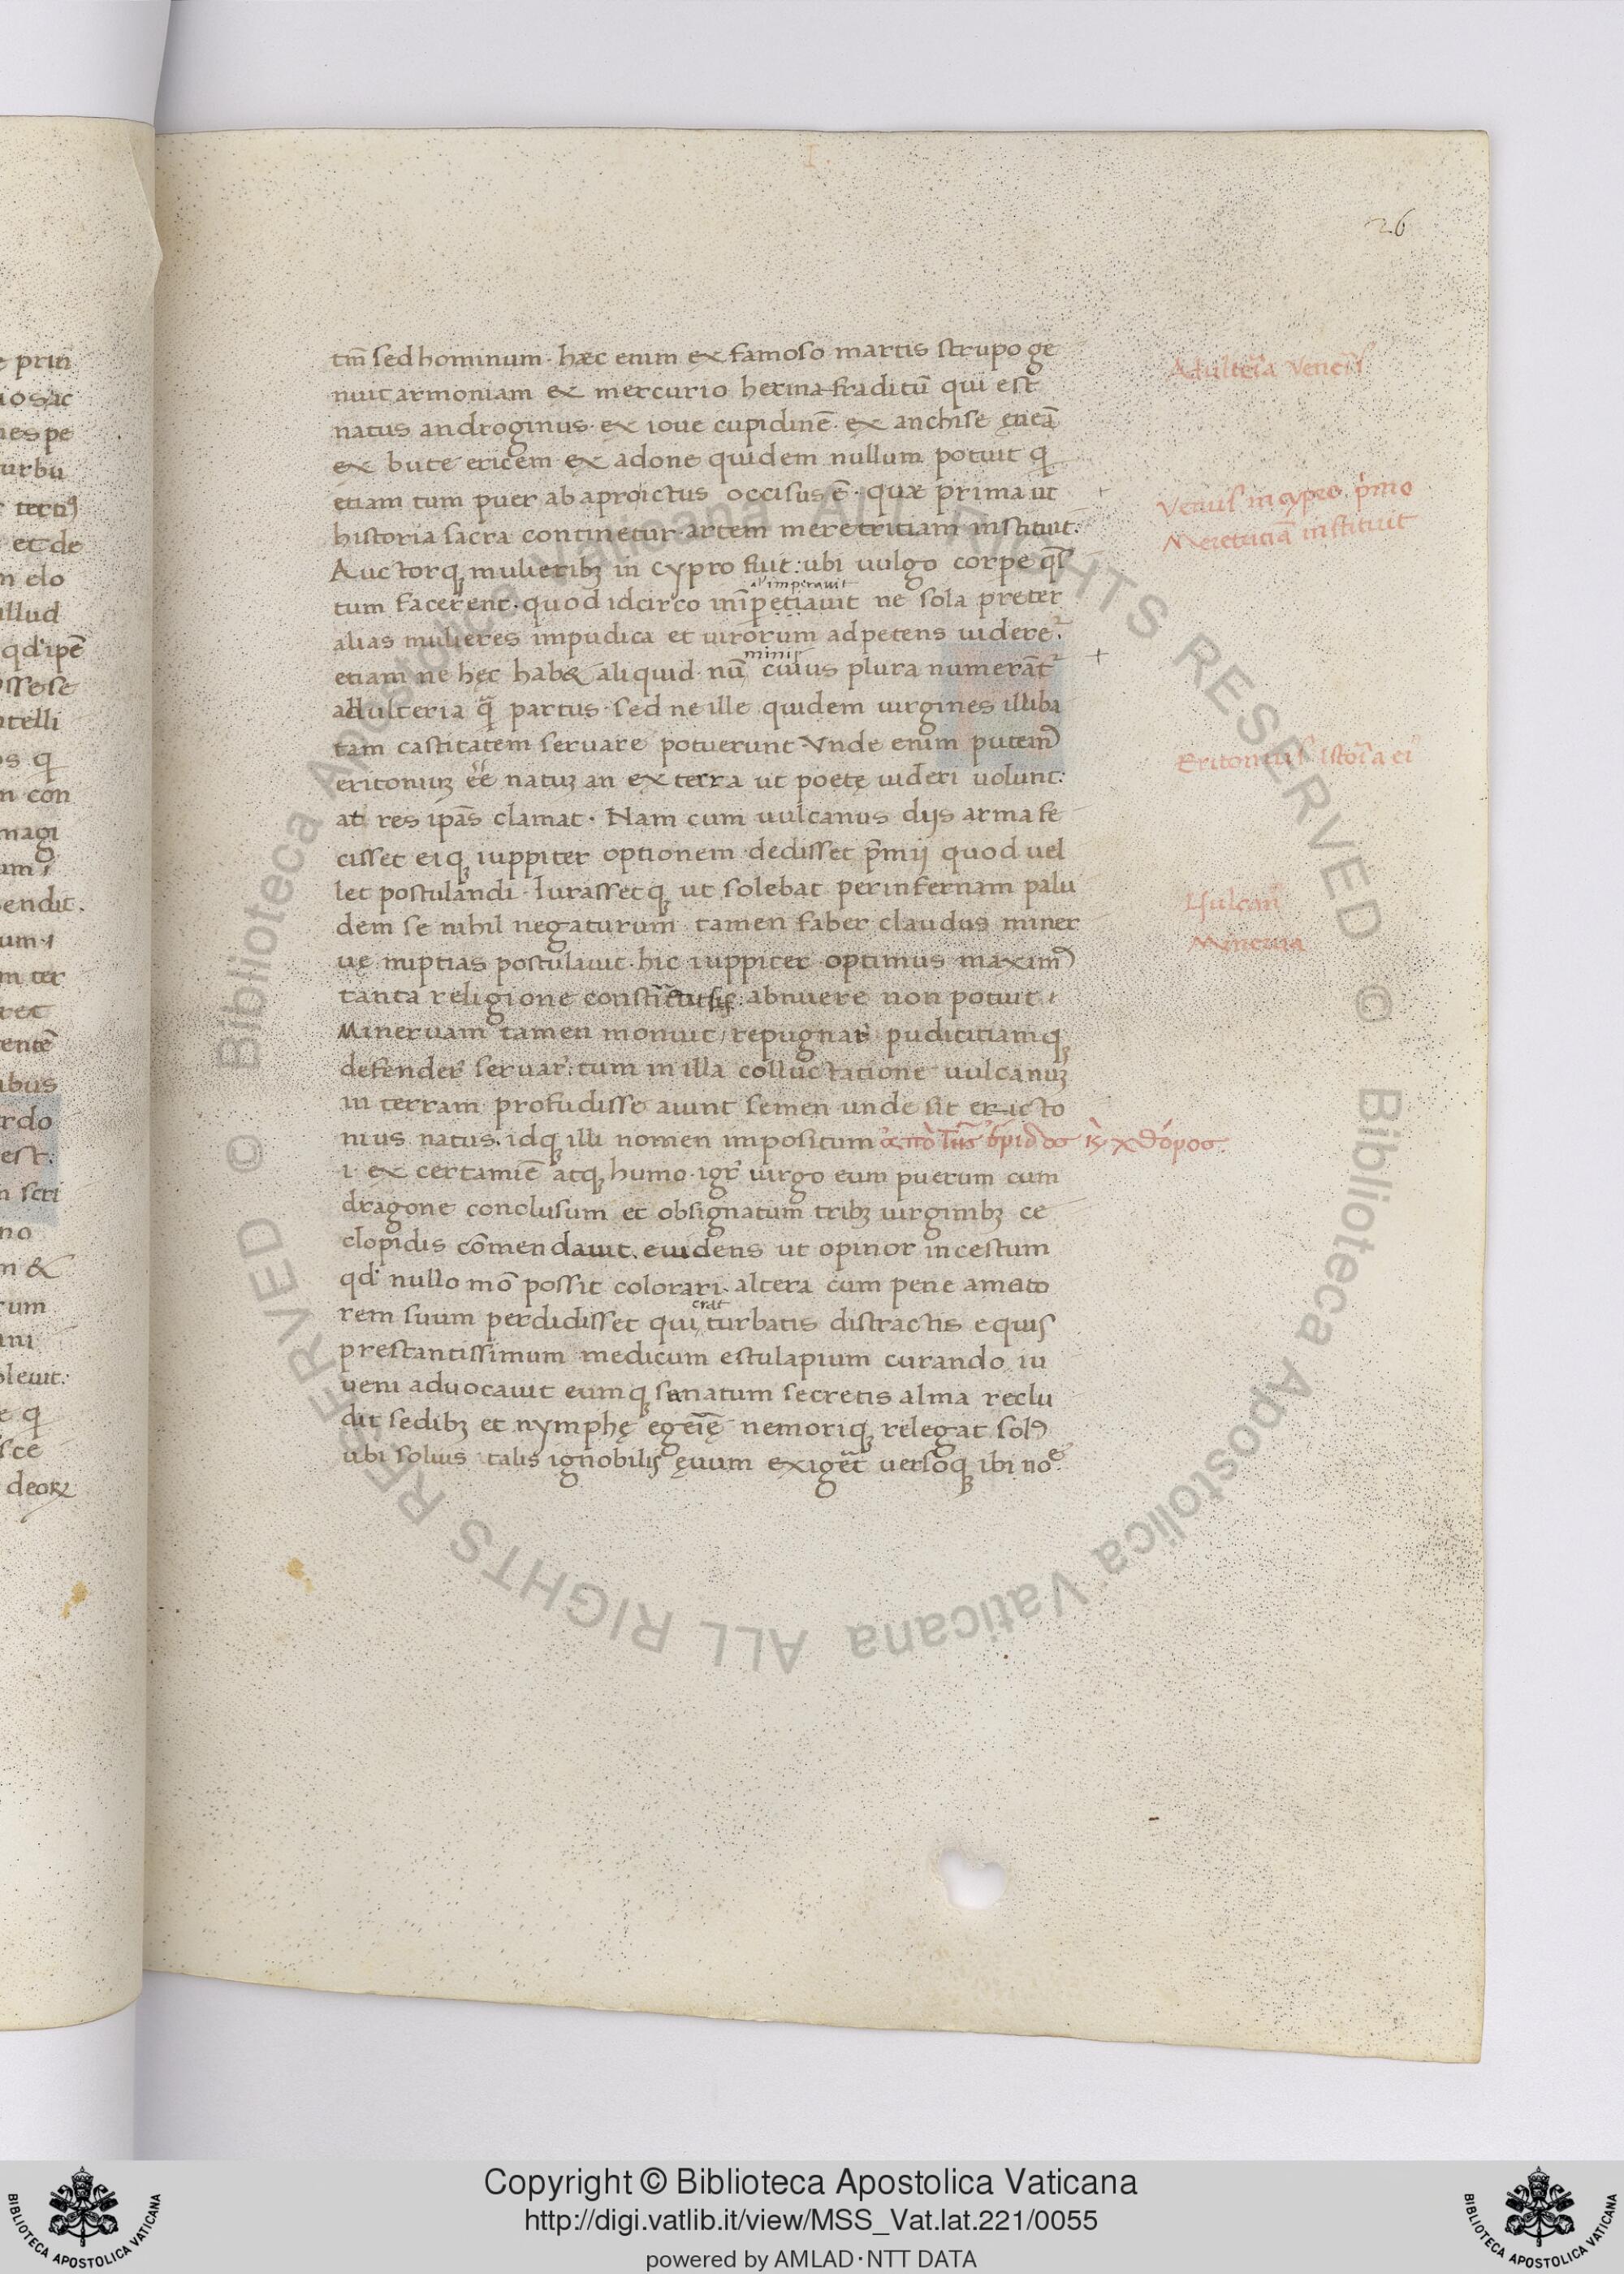 26
tm̄ sed hominum · hæc enim ex famoso martis strupo ge
nuit armoniam ex mercurio hermafraditū qui est
natus androginus · ex ioue cupidinē · ex anchise ęneā
ex bute ericem · ex adone quidem nullum potuit q̄
etiam tum puer ab aproictus occisus ē · quæ prima ut
historia sacra continetur · artem meretritiam instituit:
Auctorq; mulierib; in cypro fuit: ubi uulgo corpe q̄s
al' imperauit
tum facerent · quod idcirco inīpetiauit ne sola preter
alias mulieres impudica et uirorum adpetens uidere᷒.
minis
etiam ne hęc hab& aliquid · nū cuius plura numerāt᷒
adulteria q̄ partus · sed ne ille quidem uirgines illiba
tam castitatem seruare potuerunt · Vnde enim putem᷒
eritoniuȝ ēē natuȝ an ex terra ut poetę uideri uolunt:
at res ipās clamat · Nam cum uulcanus dijs arma fe
cisset eiq; iuppiter optionem dedisset p̄mij quod uel
let postulandi · Iurassetq; ut solebat per infernam palu
dem se nihil negaturum tamen faber claudus miner
uę nuptias postulauit · hic iuppiter optimus maxim᷒
tanta religione abnuere non potuit ·
Mineruam tamen monuit / repugnar̄ pudicitiamq;
defender̄ seruar̄: tum in illa colluctatione uulcanuȝ
in terram profudisse aiunt semen unde sit ericto
nius natus · idq; illi nomen impositum ἀπὸ
i · ex certamiē atq; humo · igr̄ uirgo eum puerum cum
dragone conclusum et obsignatum trib; uirginib; ce
clopidis cōmendauit · euidens ut opinor incestum
qd' nullo mō possit colorari · altera cum pene amato
erat
rem suum perdidisset qui turbatis distractis equis
prestantissimum medicum estulapium curando iu
ueni aduocauit eumq; sanatum secretis alma reclu
dit sedib; et nymphę egeīę nemoriq; relegat sol᷒
ubi solius talis ignobilis ęuum exigēt uersoq; ibi noē
Adulteria Veneris
Venus in cypro p̄mo
Meretriciā instituit
Eritonius istoria ei᷒
Vulcan᷒
Minerua
e prin
io sac
nes pe
urbu
r terti᷒
et de
m elo
illud
qd' ipē
isse se
ntelli
os q̄
n con
magi
um
sendit.
um ·
m ter
ret
entē
ibus
rdo
est:
n scri
no
m &
rum
ani
oleuit:
e q̄
sce
deoꝝ
© Biblioteca Apostolica Vaticana ALL RIGHTS RESERVED © Biblioteca Apostolica Vaticana ALL RIGHTS RESERVED
Copyright © Biblioteca Apostolica Vaticana
http://digi.vatlib.it/view/MSS_Vat.lat.221/0055
powered by AMLAD·NTT DATA
BIBLIOTECA APOSTOLICA VATICANA
BIBLIOTECA APOSTOLICA VATICANA